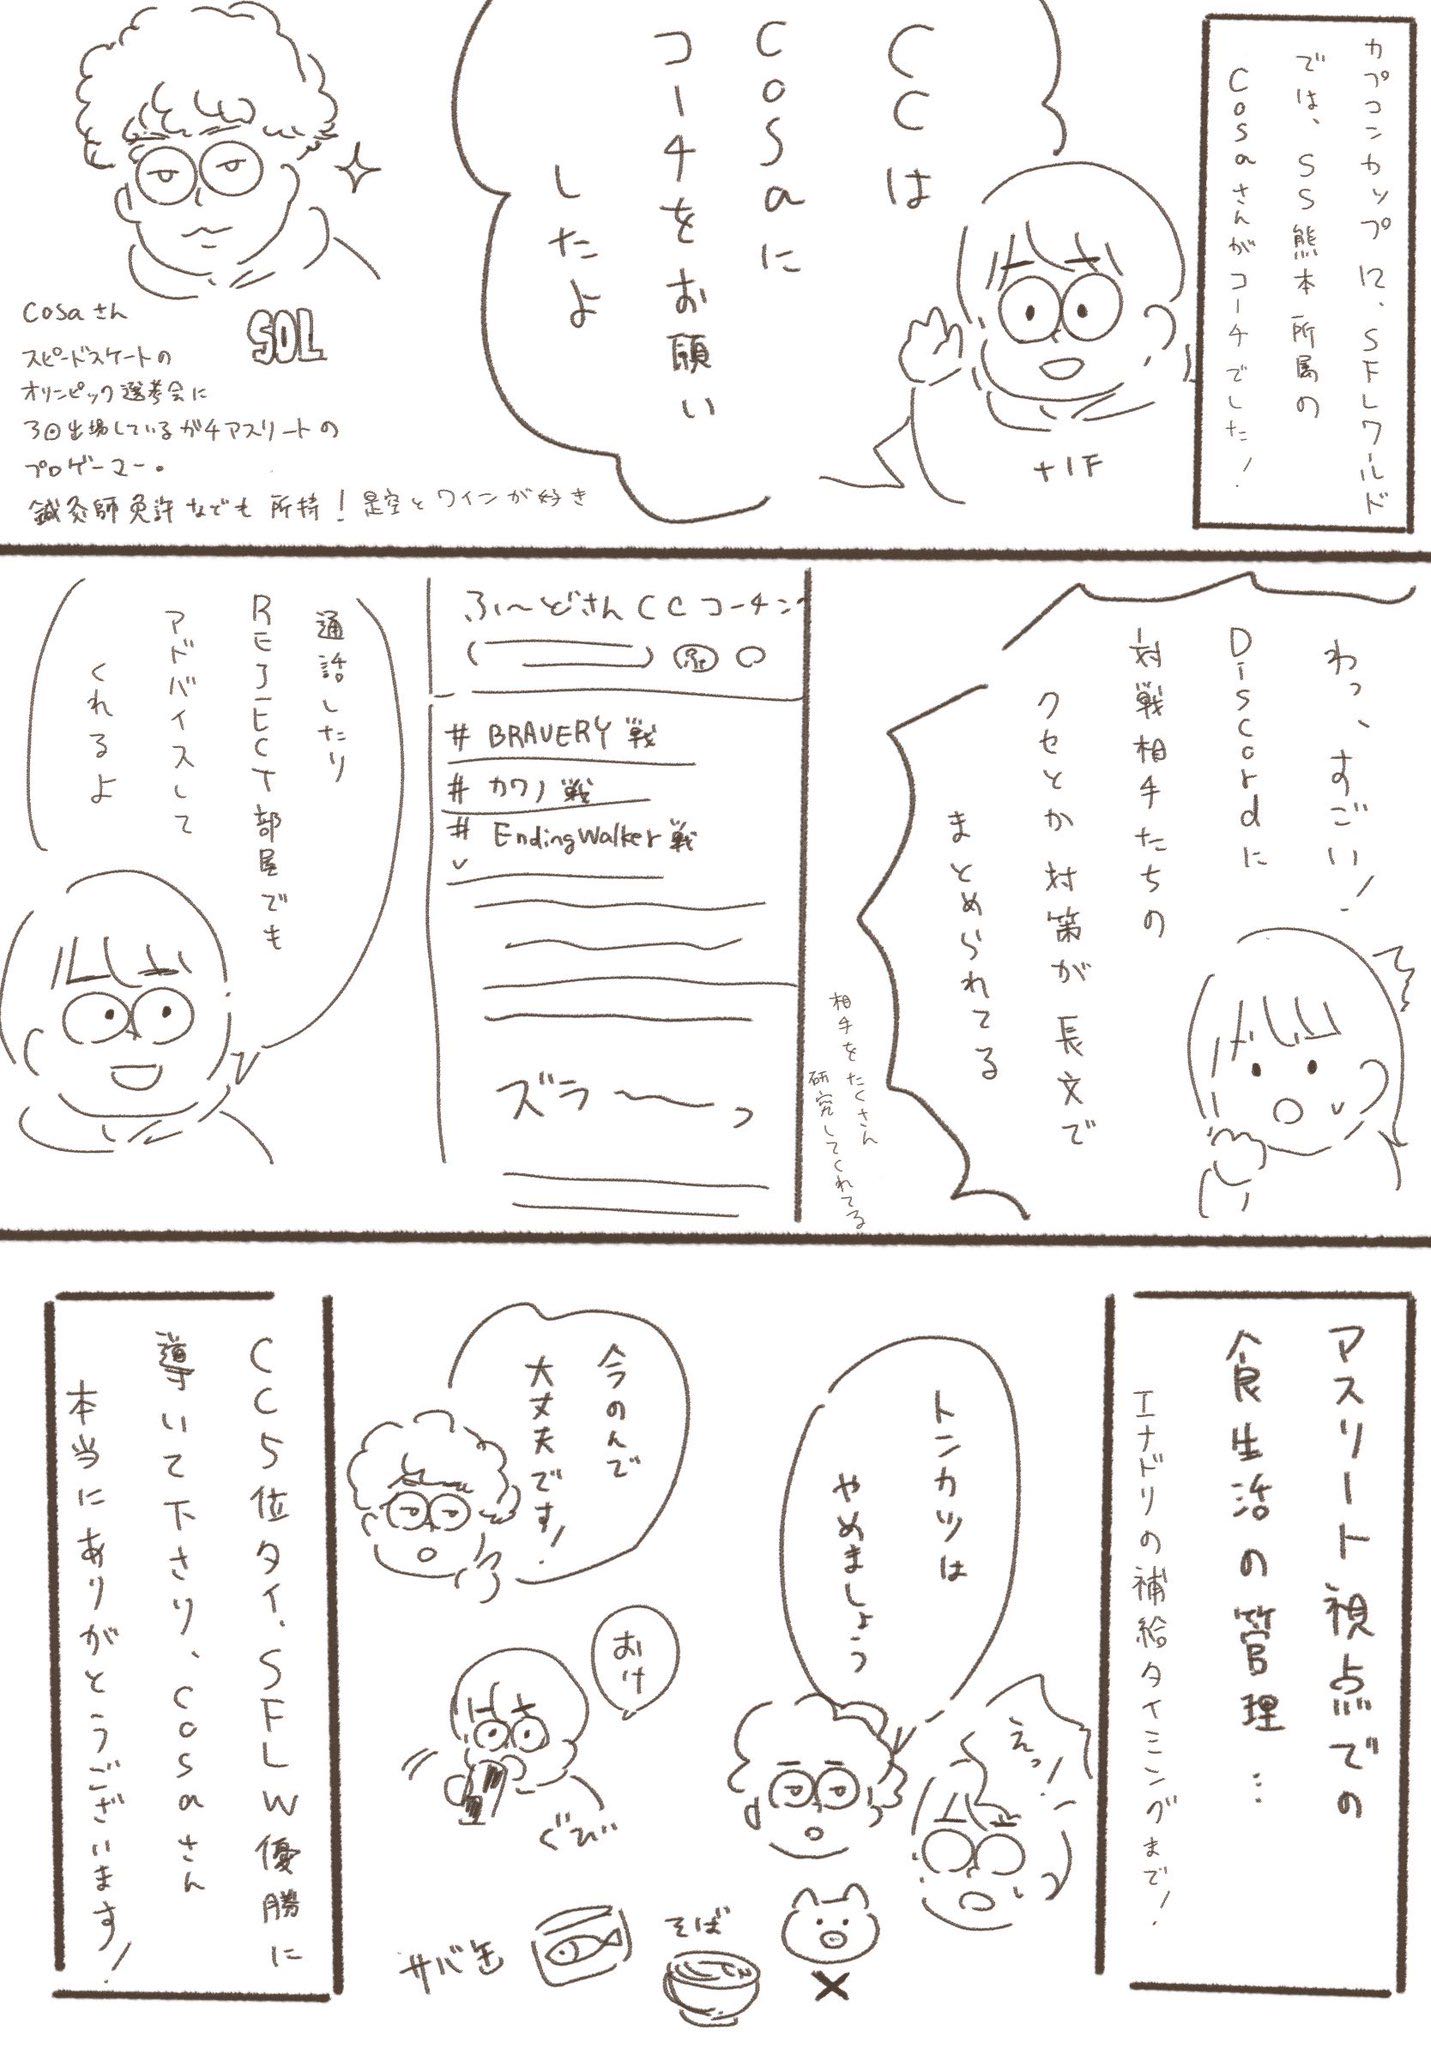 カプコンカップ12、SFLワールド
では、SS熊本所属の
Cosaさんがコーチでした!
CCは
Cosaに
コーチをお願い
したよ
ナIF
SOL
cosaさん
スピードスケートの
オリンピック選考会に
3回出場しているガチアスリートの
プロゲーマー。
鍼灸師免許なども所持!是空とワインが好き
わっ、すごい!
Discordに
対戦相手たちの
クセとか対策が長文で
まとめられてる
相手をたくさん
研究してくれてる
ふ〜どさんCCコーチング
# BRAVERY戦
# カワノ戦
# EndingWalker戦
ズラ〜〜っ
通話したり
REJECT部屋でも
アドバイスして
くれるよ
アスリート視点での
食生活の管理…
エナドリの補給タイミングまで!
トンカツは
やめましょう
えっ!
そば
サバ缶
今のんで
大丈夫です!
おけ
ぐび
CC5位タイ、SFLW優勝に
導いて下さり、cosaさん
本当にありがとうございます!